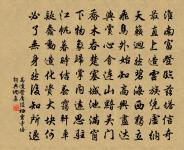 淮南富登臨茲塔信奇
最直上造雲族憑虛納
天籟迥然碧海西獨立
飛鳥外始知高興盡適
與賞心會連山黯吳門
喬木吞楚塞城池滿窗
下物象歸掌內遠思駐
江帆暮時結春靄軒車
疑蠢動造化資大塊何
必了無身然後知所退
高適登廣陵棲靈寺塔